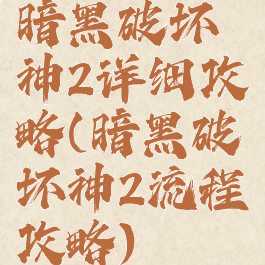 暗黑破坏
神2详细攻
略(暗黑破
坏神2流程
攻略)